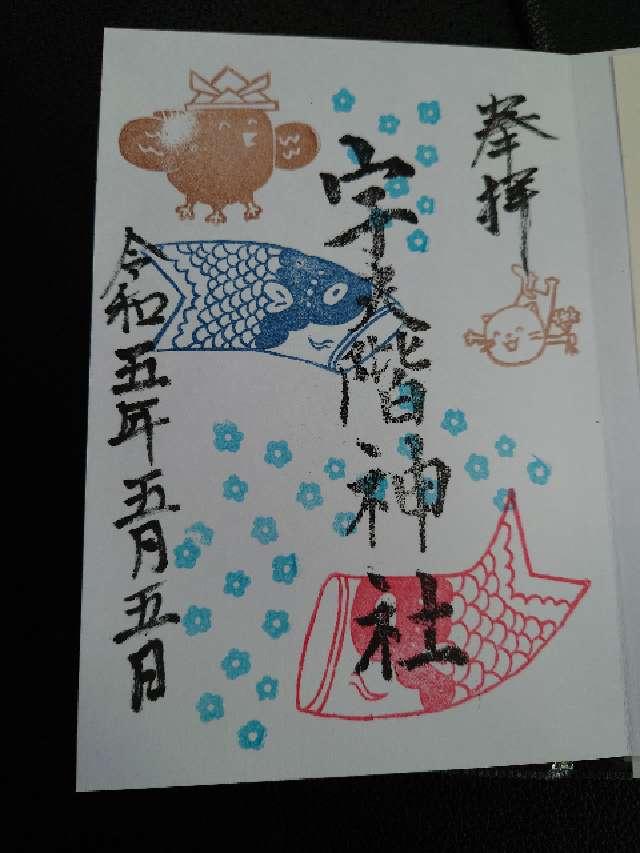 奉拝
宇夫階神社
令和五年五月五日